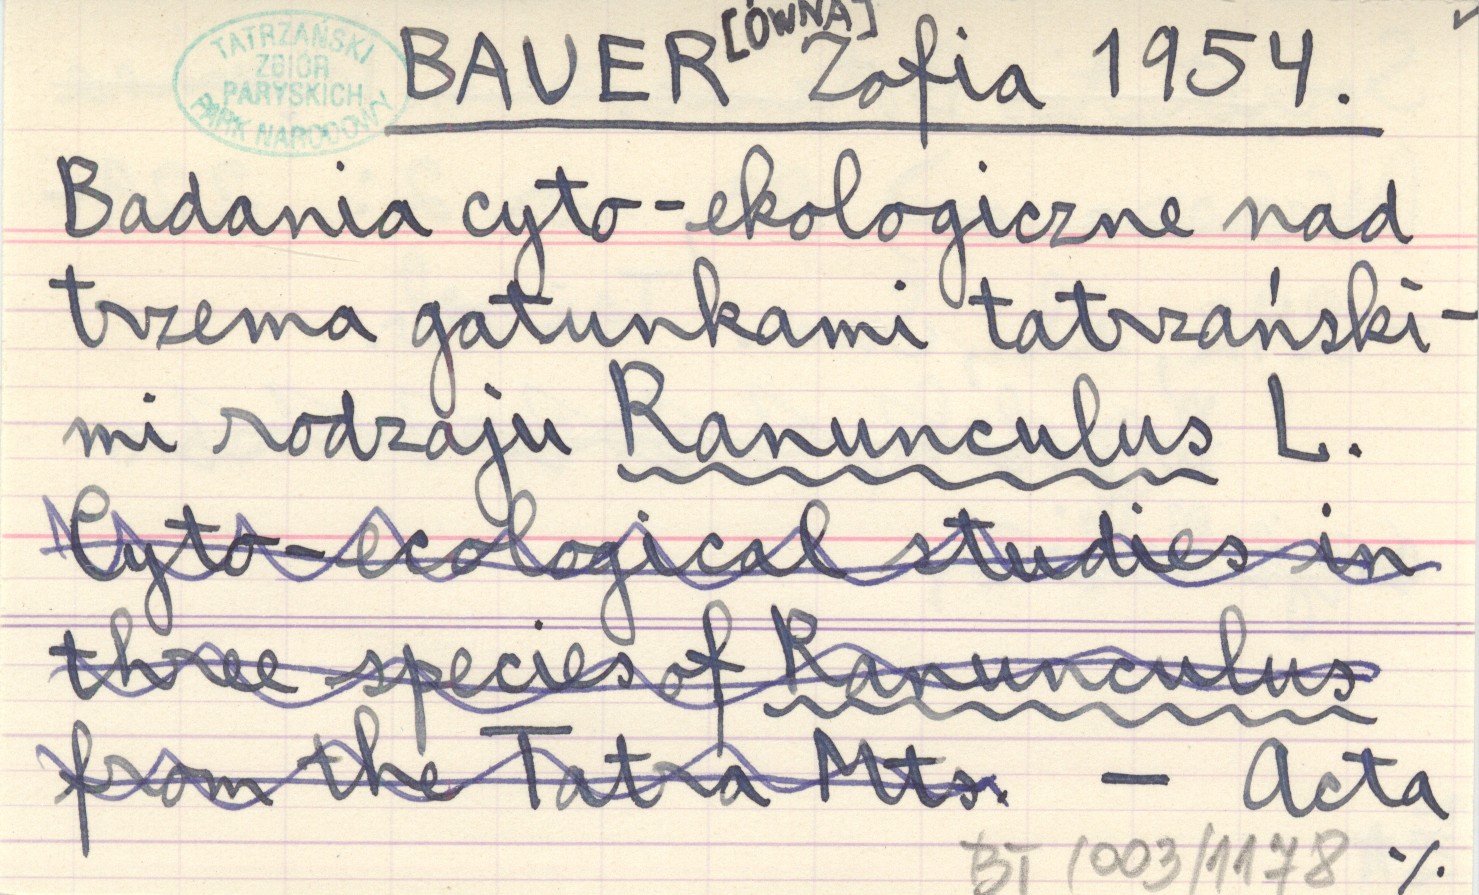 TATRZAŃSKI
ZBIÓR
PARYSKICH
PARK NARODOWY
BAUER [ÓWNA] Zofia 1954.
Badania cyto-ekologiczne nad
trzema gatunkami tatrzański-
mi rodzaju Ranunculus L.
Cyto-ecological studies in
three species of Ranunculus
from the Tatra Mts. — Acta
BT 1003/1178 ·/.